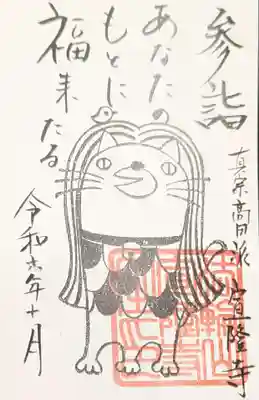 参詣
真宗高田派 宣隆寺
あなたの
もとに
福来たる
令和六年十月